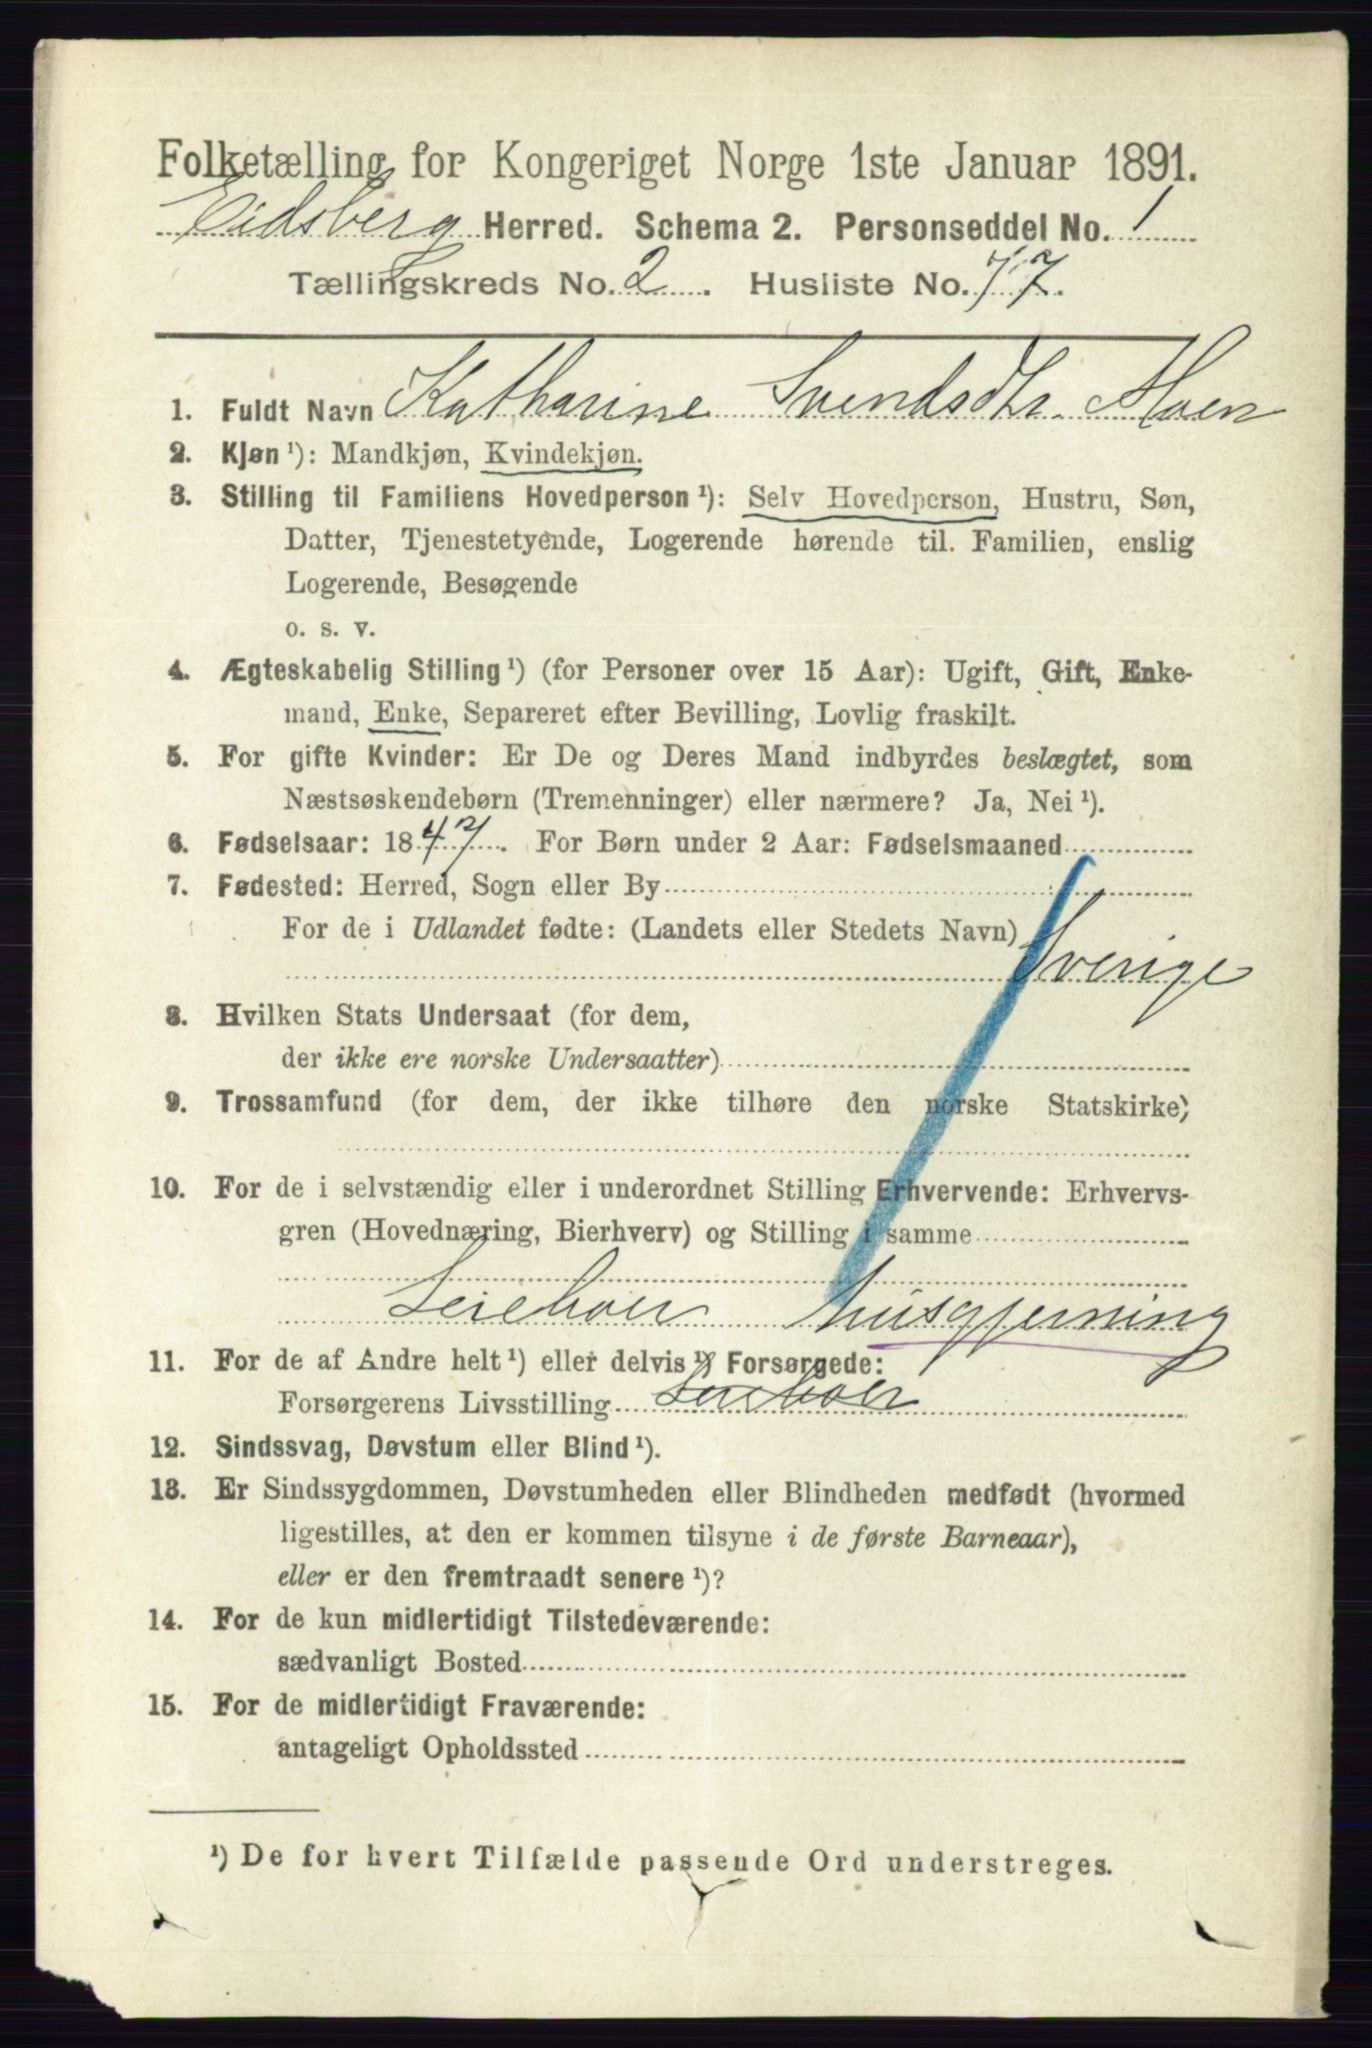 Folketælling for Kongeriget Norge 1ste Januar 1891.
Eidsberg Herred. Schema 2. Personseddel No. 1
Tællingskreds No. 2. Husliste No. 77.
1. Fuldt Navn Katharine Svendsdtr. Moen
2. Kjøn ¹): Mandkjøn, Kvindekjøn.
3. Stilling til Familiens Hovedperson ¹): Selv Hovedperson, Hustru, Søn,
Datter, Tjenestetyende, Logerende hørende til. Familien, enslig
Logerende, Besøgende
o. s. v.
4. Ægteskabelig Stilling ¹) (for Personer over 15 Aar): Ugift, Gift, Enke-
mand, Enke, Separeret efter Bevilling, Lovlig fraskilt.
5. For gifte Kvinder: Er De og Deres Mand indbyrdes beslægtet, som
Næstsøskendebørn (Tremenninger) eller nærmere? Ja, Nei ¹).
6. Fødselsaar: 1847. For Børn under 2 Aar: Fødselsmaaned
7. Fødested: Herred, Sogn eller By
For de i Udlandet fødte: (Landets eller Stedets Navn)
Sverige
8. Hvilken Stats Undersaat (for dem,
der ikke ere norske Undersaatter)
9. Trossamfund (for dem, der ikke tilhøre den norske Statskirke)
10. For de i selvstændig eller i underordnet Stilling Erhvervende: Erhvervs-
gren (Hovednæring, Bierhverv) og Stilling i samme
Leieboer husgjerning
11. For de af Andre helt ¹) eller delvis ¹) Forsørgede:
Forsørgerens Livsstilling Leieboer
12. Sindssvag, Døvstum eller Blind ¹).
13. Er Sindssygdommen, Døvstumheden eller Blindheden medfødt (hvormed
ligestilles, at den er kommen tilsyne i de første Barneaar),
eller er den fremtraadt senere ¹)?
14. For de kun midlertidigt Tilstedeværende:
sædvanligt Bosted
15. For de midlertidigt Fraværende:
antageligt Opholdssted
¹) De for hvert Tilfælde passende Ord understreges.